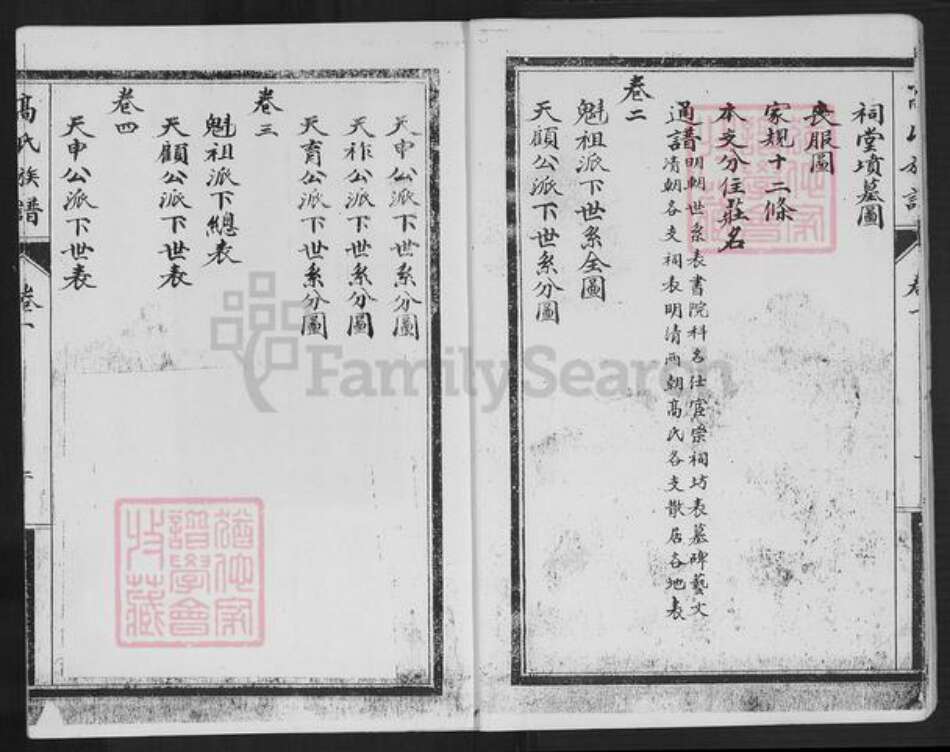 祠堂墳墓圖
喪服圖
家規十二條
本支分住莊名
通譜明朝世系表書院科名仕宦崇祠坊表墓碑藝文
清朝各支祠表明清兩朝高氏各支散居各地表
卷二
魁祖派下世系全圖
天顧公派下世系分圖
天申公派下世系分圖
天祚公派下世系分圖
天育公派下世系分圖
卷三
魁祖派下總表
天顧公派下世表
卷四
天申公派下世表
高氏族譜
卷一
二
FamilySearch